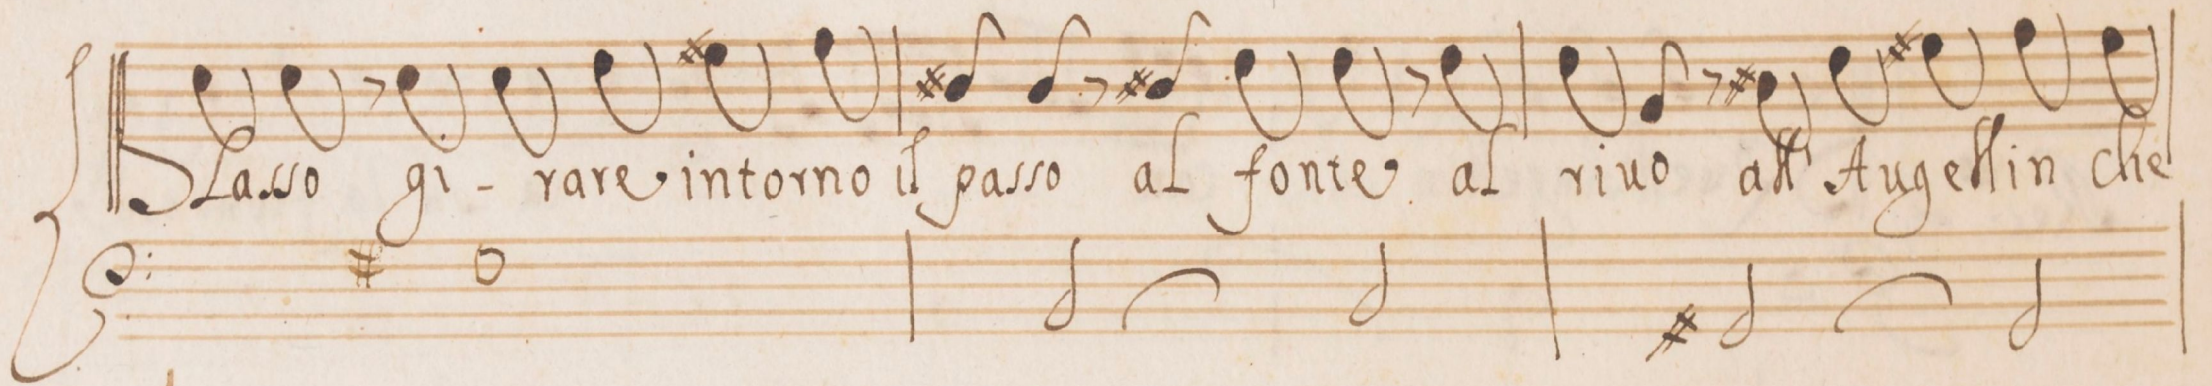 Lasso gi - rare intorno il passo al fonte al riuo all' Augellin che